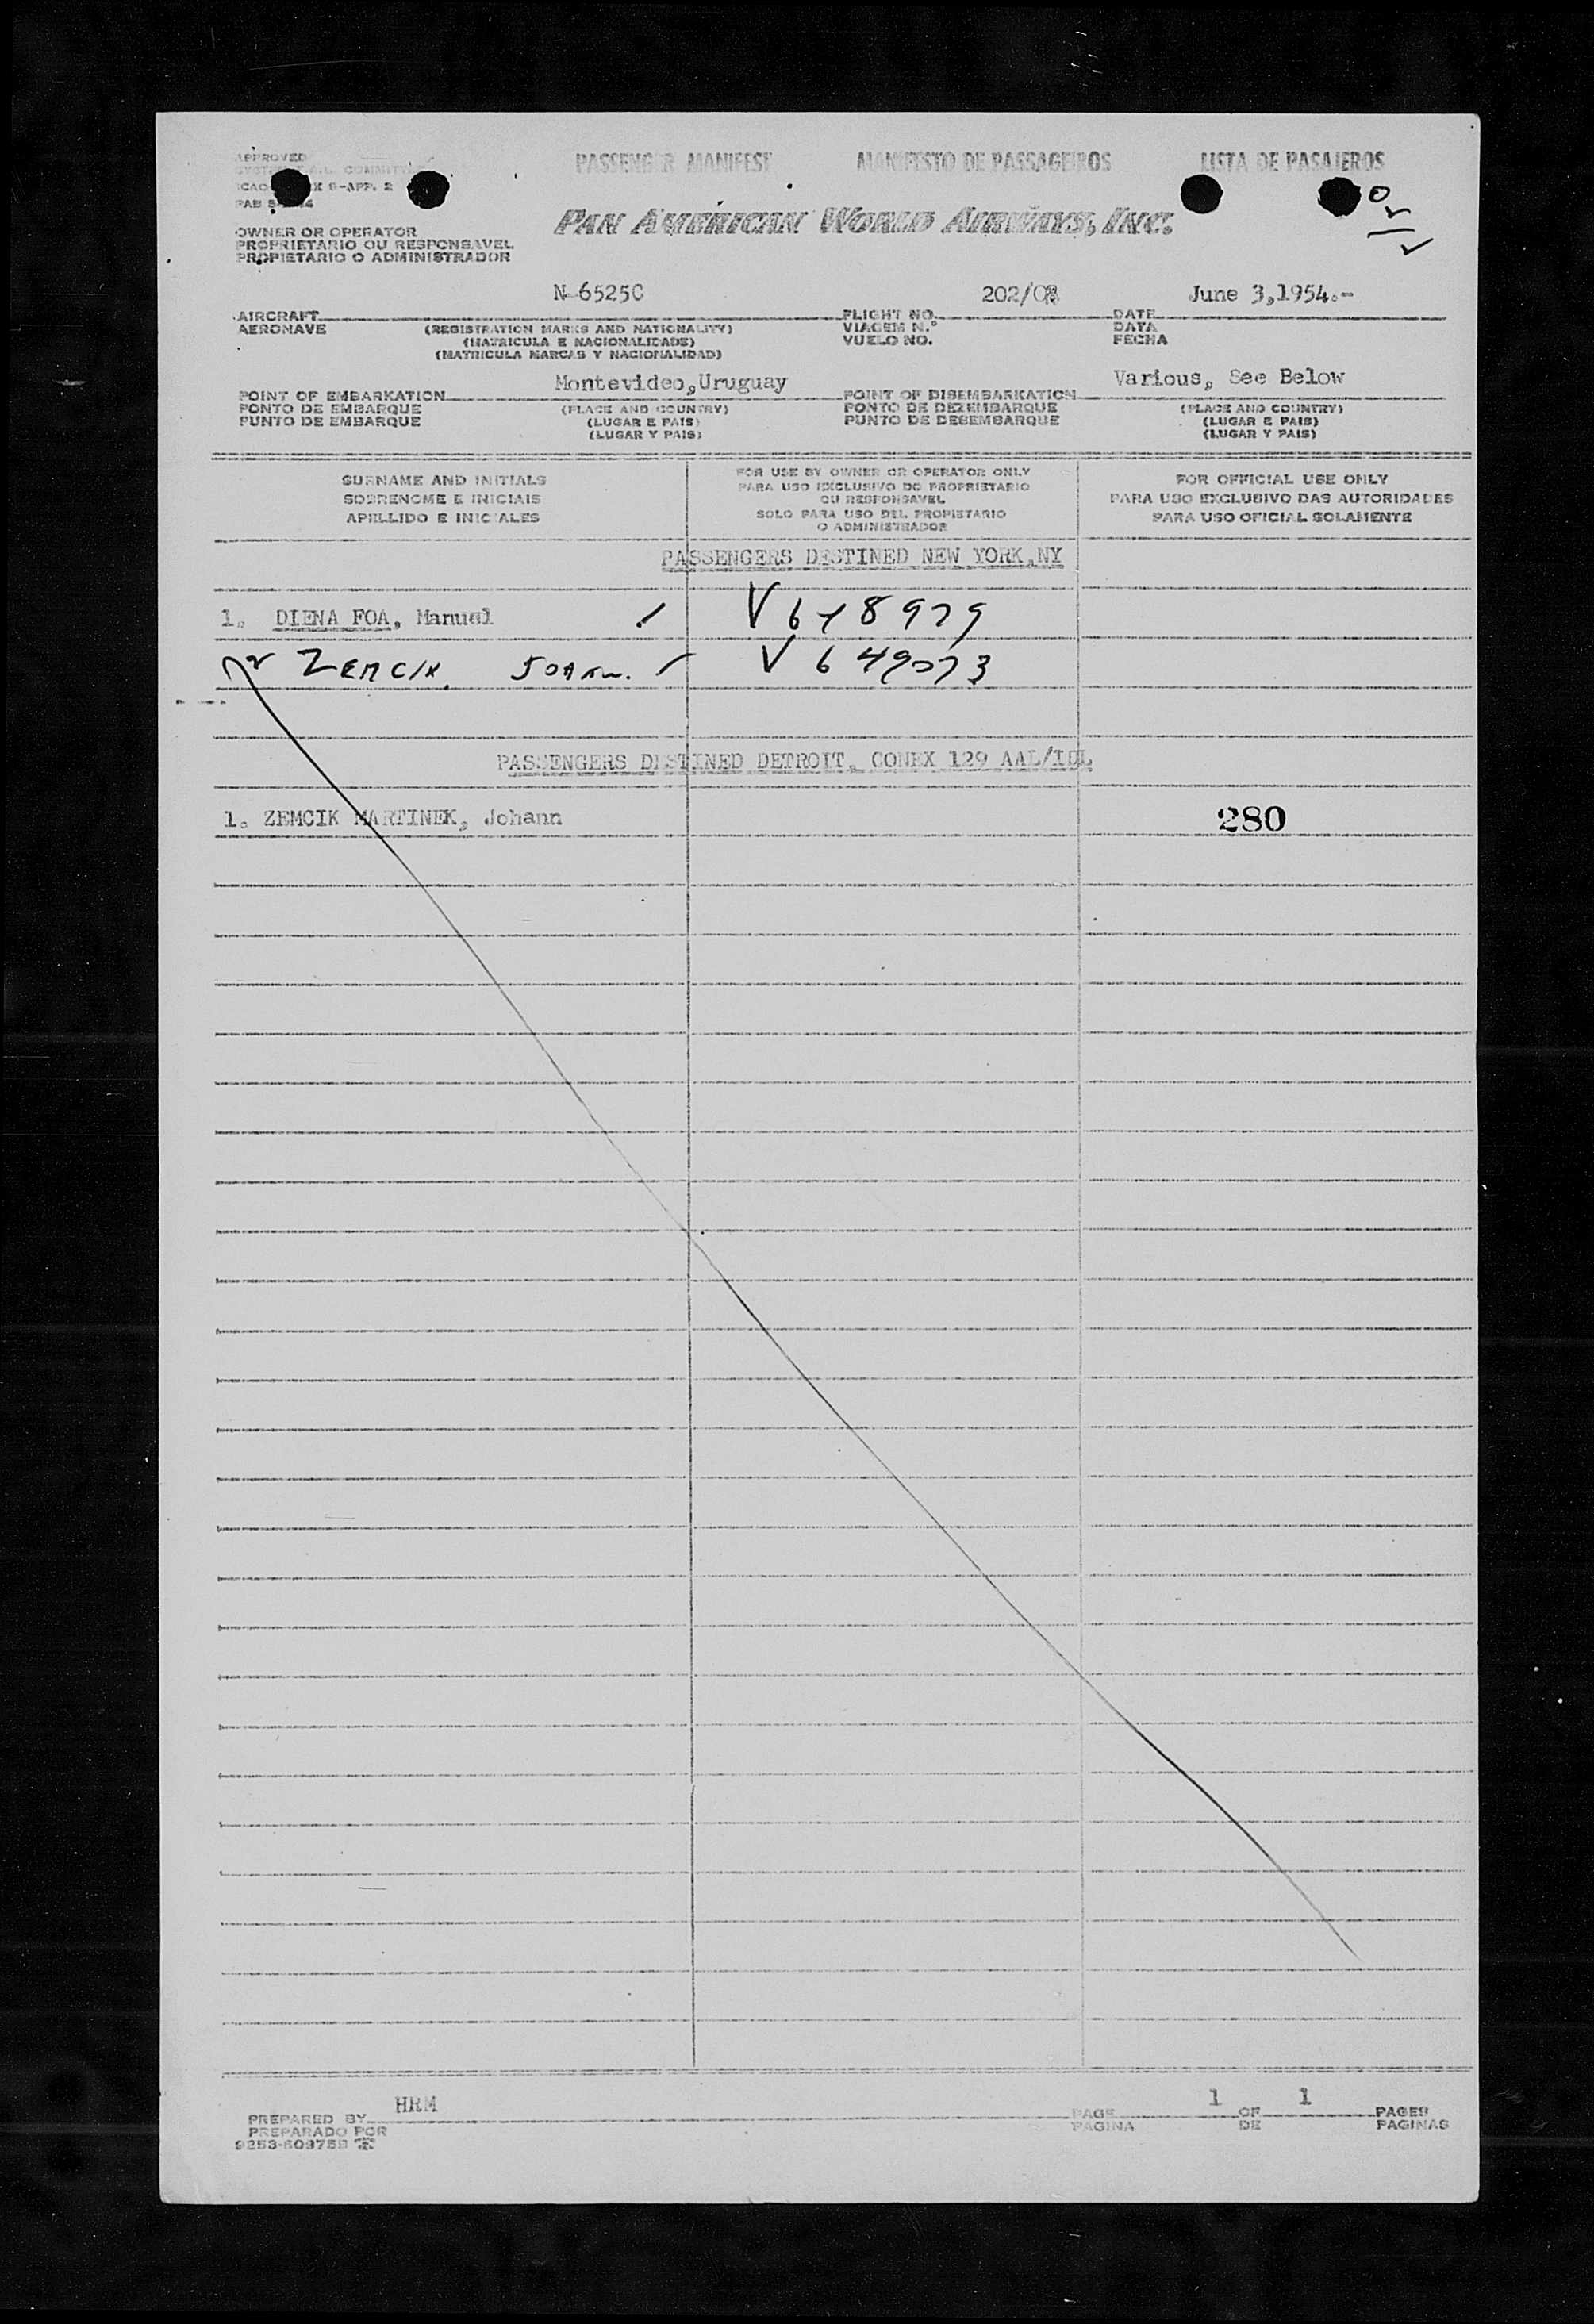 APPROVED
PASSENGER MANIFEST MANIFESTO DE PASSAGEIROS LISTA DE PASAJEROS
9-APP. 2
PAN AMERICAN WORLD AIRWAYS, INC.
OWNER OR OPERATOR
PROPRIETARIO OU RESPONSAVEL
PROPIETARIO O ADMINISTRADOR
N-6525C 202/03 June 3,1954.-
AIRCRAFT FLIGHT NO. DATE
AERONAVE (REGISTRATION MARKS AND NATIONALITY) VIAGEM N.º DATA
(MATRICULA E NACIONALIDADE) VUELO NO. FECHA
(MATRICULA MARCAS Y NACIONALIDAD)
Montevideo,Uruguay Various, See Below
POINT OF EMBARKATION POINT OF DISEMBARKATION
PONTO DE EMBARQUE (PLACE AND COUNTRY) PONTO DE DEZEMBARQUE (PLACE AND COUNTRY)
PUNTO DE EMBARQUE (LUGAR E PAIS) PUNTO DE DESEMBARQUE (LUGAR E PAIS)
(LUGAR Y PAIS) (LUGAR Y PAIS)
SURNAME AND INITIALS
SOBRENOME E INICIAIS
APELLIDO E INICIALES
FOR USE BY OWNER OR OPERATOR ONLY
PARA USO EXCLUSIVO DO PROPRIETARIO
OU RESPONSAVEL
SOLO PARA USO DEL PROPIETARIO
O ADMINISTRADOR
FOR OFFICIAL USE ONLY
PARA USO EXCLUSIVO DAS AUTORIDADES
PARA USO OFICIAL SOLAMENTE
PASSENGERS DESTINED NEW YORK,NY
1. DIENA FOA, Manuel V 648979
ZEMCIK V 649073
PASSENGERS DESTINED DETROIT, CONEX 129 AAL/IDL
1. ZEMCIK MARTINEK, Johann 280
HRM 1 1
PREPARED BY PAGE OF PAGES
PREPARADO POR PAGINA DE PAGINAS